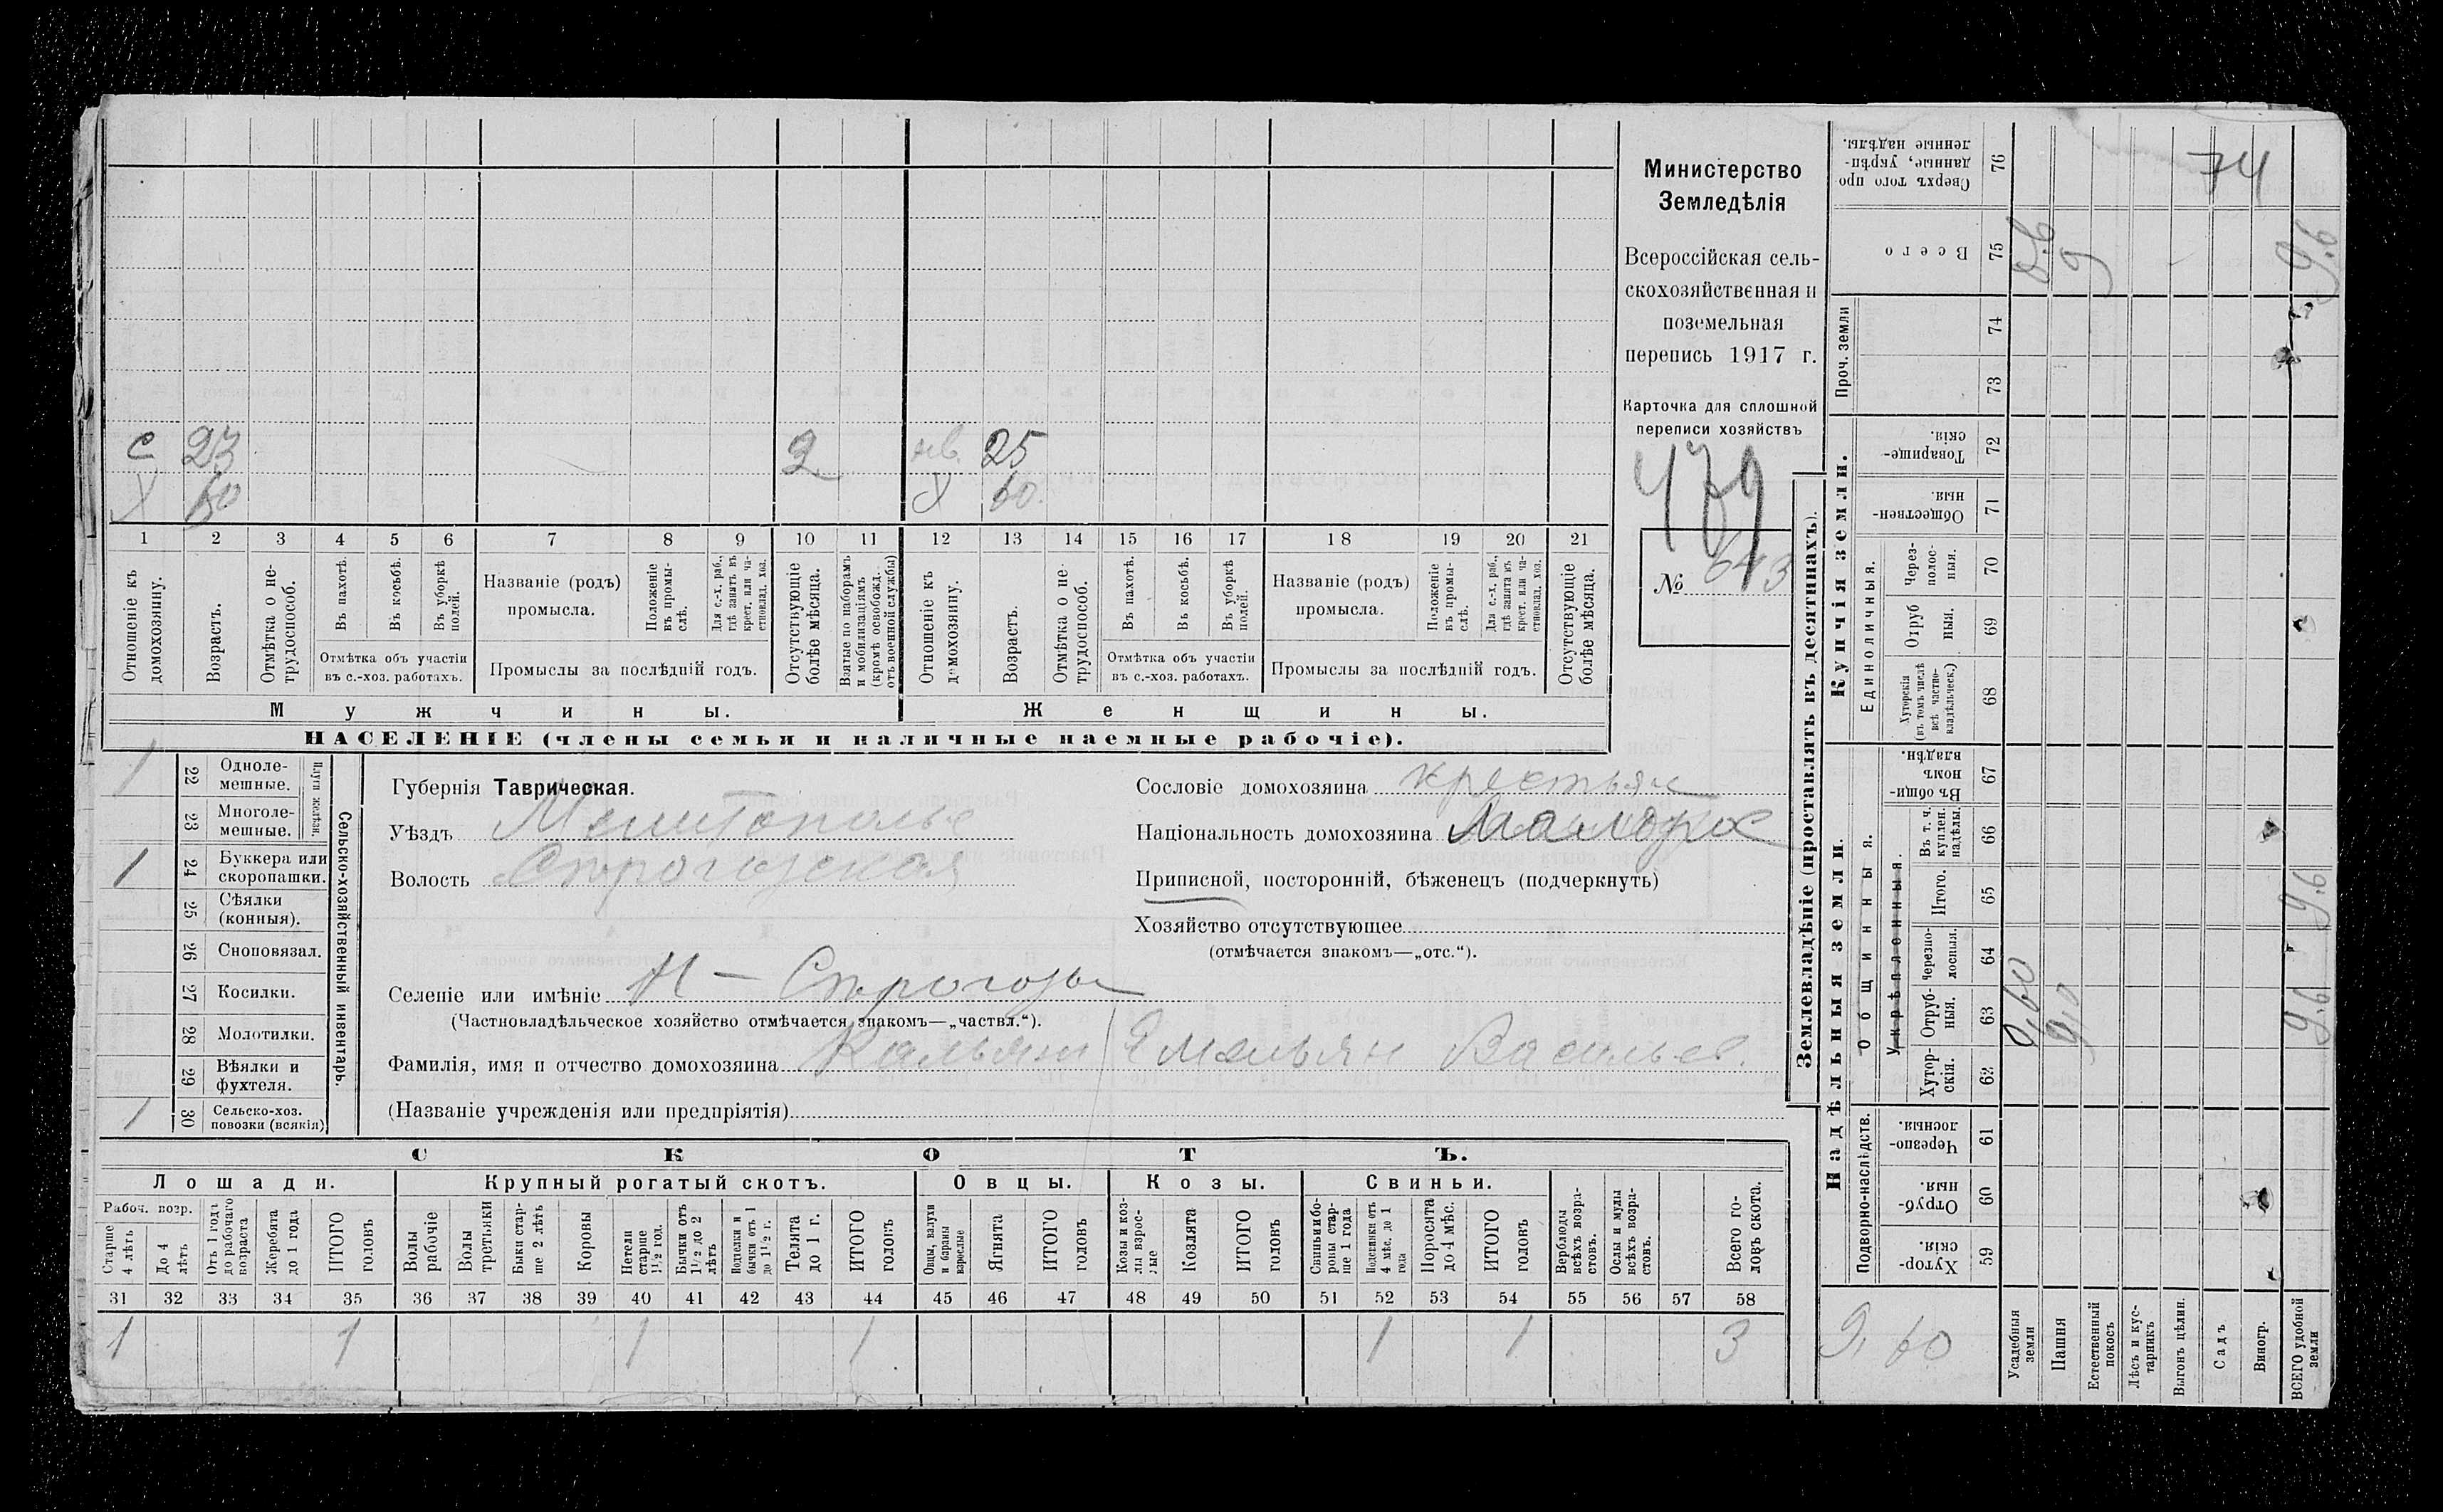 Министерство
Земледѣлія
Всероссійская сель-
скохозяйственная и
поземельная
перепись 1917 г.
Карточка для сплошной
переписи хозяйствъ
479
№ 643
с 23 2 нев. 25
X 60 X 60.
1 2 3 4 5 6 7 8 9 10 11 12 13 14 15 16 17 18 19 20 21
Отношеніе къ домохозяину.
Возрастъ.
Отмѣтка о не-трудоспособ.
Въ пахотѣ.
Въ косьбѣ.
Въ уборкѣ полей.
Отмѣтка объ участіи
въ с.-хоз. работахъ.
Названіе (родъ)
промысла.
Положеніе въ промы-слѣ.
Для с.-х. раб., гдѣ занятъ въ крест. или ча-стновлад. хоз.
Промыслы за послѣдній годъ.
Отсутствующіе болѣе мѣсяца.
Взятые по наборамъ и мобилизаціямъ (кромѣ освобожд. отъ военной службы)
Отношеніе къ домохозяину.
Возрастъ.
Отмѣтка о не-трудоспособ.
Въ пахотѣ.
Въ косьбѣ.
Въ уборкѣ полей.
Отмѣтка объ участіи
въ с.-хоз. работахъ.
Названіе (родъ)
промысла.
Положеніе въ промы-слѣ.
Для с.-х. раб., гдѣ занята въ крест. или ча-стновлад. хоз.
Промыслы за послѣдній годъ.
Отсутствующіе болѣе мѣсяца.
Мужчины. Женщины.
НАСЕЛЕНІЕ (члены семьи и наличные наемные рабочіе).
Сельско-хозяйственный инвентарь.
Плуги желѣзн.
1 22 Одноле-мешные.
23 Многоле-мешные.
1 24 Буккера или скоропашки.
25 Сѣялки (конныя).
26 Сноповязал.
27 Косилки.
28 Молотилки.
29 Вѣялки и фухтеля.
1 30 Сельско-хоз. повозки (всякія)
Губернія Таврическая.
Уѣздъ
Волость
Сословіе домохозяина крестьян
Національность домохозяина Малорос
Приписной, посторонній, бѣженецъ (подчеркнуть)
Хозяйство отсутствующее
(отмѣчается знакомъ—„отс.“).
Селеніе или имѣніе Н — Строгозы
(Частновладѣльческое хозяйство отмѣчается знакомъ—„частвл.“).
Фамилія, имя и отчество домохозяина Емельян Васильев.
(Названіе учрежденія или предпріятія)
СКОТЪ.
Лошади. Крупный рогатый скотъ. Овцы. Козы. Свиньи.
Рабоч. возр.
Старше 4 лѣтъ
До 4 лѣтъ
Отъ 1 года до рабочаго возраста
Жеребята до 1 года
ИТОГО головъ
Волы рабочіе
Волы третьяки
Быки стар-ше 2 лѣтъ
Коровы
Нетели старше 1½ год.
Бычки отъ 1½ до 2 лѣтъ
Подтелки и бычки отъ 1 до 1½ г.
Телята до 1 г.
ИТОГО головъ
Овцы, валухи и бараны взрослые
Ягнята
ИТОГО головъ
Козы и коз-лы взрос-лые
Козлята
ИТОГО головъ
Свиньи и бо-ровы стар-ше 1 года
Подсвинки отъ 4 мѣс. до 1 года
Поросята до 4 мѣс.
ИТОГО головъ
Верблюды всѣхъ возра-стовъ.
Ослы и мулы всѣхъ возра-стовъ.
Всего го-ловъ скота.
31 32 33 34 35 36 37 38 39 40 41 42 43 44 45 46 47 48 49 50 51 52 53 54 55 56 57 58
1 1 1 1 1 1 3
Землевладѣніе (проставлять въ десятинахъ).
74
Сверхъ того про-данные, укрѣп-ленные надѣлы. 76
Всего 75 9.6
Проч. земли 74
73
Купчія земли.
Товарище-скія. 72
Обществен-ныя. 71
Единоличныя.
Через-полос-ныя. 70
Отруб ныя. 69
Хуторскія (въ томъ числѣ всѣ частно-владѣльческ.) 68
Надѣльныя земли.
Общинныя.
Въ общи-номъ владѣн. 67
Укрѣпленныя.
Въ т. ч. куплен. надѣлы. 66
Итого. 65 9.6
Черезпо-лосныя. 64
Отруб-ныя. 63 9.6
Хутор-скія. 62
Подворно-наслѣдств.
Черезпо-лосныя. 61
Отруб-ныя. 60
Хутор-скія. 59
9,60
Усадебныя земли
Пашня
Естественный покосъ
Лѣсъ и кус-тарникъ
Выгонъ цѣлин.
Садъ
Виногр.
ВСЕГО удобной земли